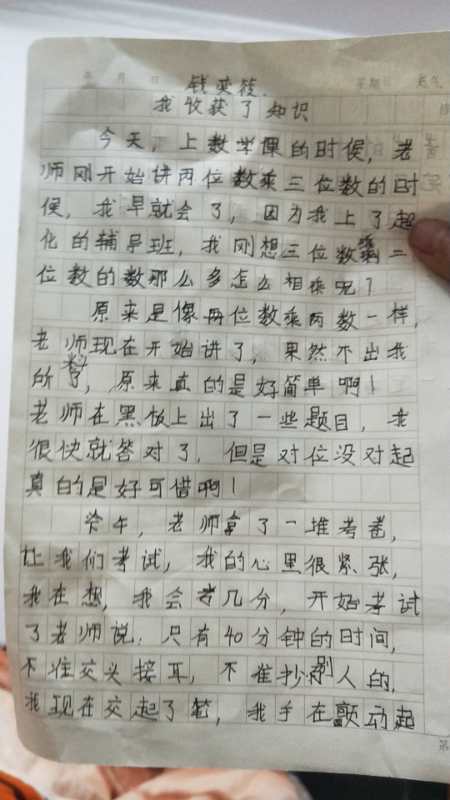 年 月 日 星期 天气
钱奕筱
我收获了知识
今天，上数学课的时候，老
师刚开始讲两位数乘三位数的时
候，我早就会了，因为我上了起
化的辅导班，我刚想三位数乘二
位数的数那么多怎么相乘呢？
原来是像两位数乘两数一样，
老师现在开始讲了，果然不出我
所料，原来真的是好简单啊！
老师在黑饭上出了一些题目，我
很快就答对了，但是对位没对起
真的是好可惜啊！
今午，老师拿了一堆考卷，
让我们考试，我的心里很紧张，
我在想，我会考几分，开始考试
了老师说：只有40分钟的时间，
不准交头接耳，不准抄别人的，
我现在交起了笔，我手在颤动起
第